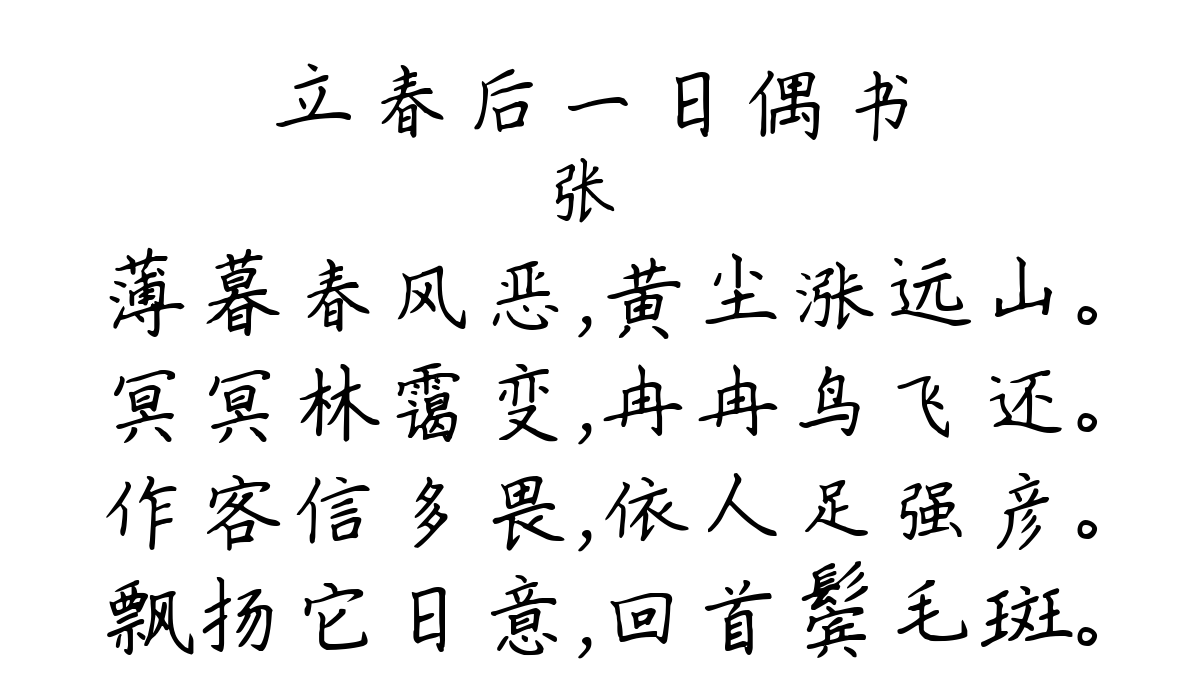 立春后一日偶书
张
薄暮春风恶,黄尘涨远山。
冥冥林霭变,冉冉鸟飞还。
作客信多畏,依人足强彦。
飘扬它日意,回首鬓毛斑。